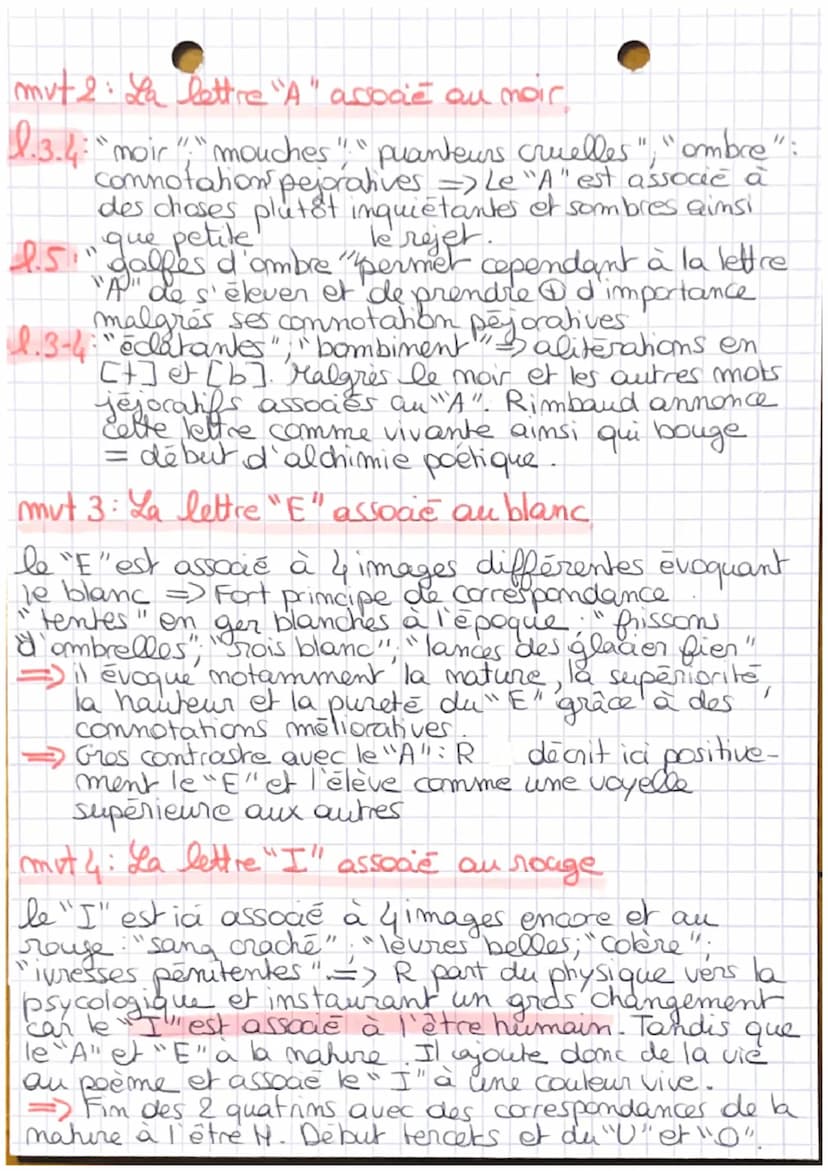 mvt 2 : La lettre "A" associé au noir
l.3.4 : "moir", "mouches", "puanteurs cruelles", "ombre" :
connotations pejoratives => Le "A" est associé à
des choses plutôt inquiétantes et sombres ainsi
que petite le rejet.
l.5 : "golfes d'ombre" permet cependant à la lettre
"A" de s'élever et de prendre ⊕ d'importance
malgrés ses connotation péjoratives
l.3-4 : "éclatantes", "bombiment" => alitérations en
[t] et [b]. Malgrès le noir et les autres mots
jéjoratifs associés au "A". Rimbaud annonce
cette lettre comme vivante ainsi qui bouge
= début d'alchimie poétique.
mvt 3 : La lettre "E" associé au blanc
le "E" est associé à 4 images différentes évoquant
le blanc => Fort principe de correspondance.
"tentes" en ger blanches à l'époque ; "frissons
d'ombrelles" ; "rois blanc" ; "lances des glacier fier"
=> il évoque notamment la nature, la supériorité,
la hauteur et la pureté du "E" grâce à des
connotations mélioratives.
=> Gros contraste avec le "A" : R décrit ici positive-
ment le "E" et l'élève comme une voyelle
supérieure aux autres
mvt 4 : La lettre "I" associé au rouge
le "I" est ici associé à 4 images encore et au
rouge : "sang craché" ; "lèvres belles ; "colère" ;
"ivresses pénitentes". => R part du physique vers la
psycologique et instaurant un gros changement
car le "I" est associé à l'être humain. Tandis que
le "A" et "E" à la nature. Il ajoute donc de la vie
au poème et associé le "I" à une couleur vive.
=> Fin des 2 quatrins avec des correspondances de la
nature à l'être H. Début tercets et du "U" et "O".